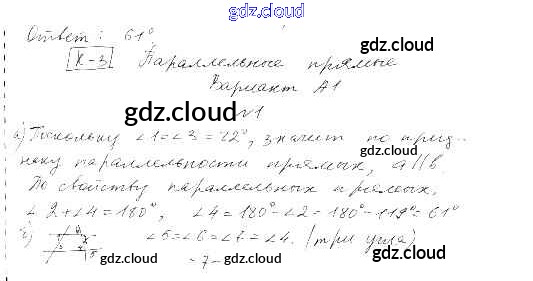 gdz.cloud
Ответ: 61°
К-3 Параллельные прямые
gdz.cloud
Вариант А1
gdz.cloud
№1
а) Поскольку ∠1=∠3=22°, значит по приз-
gdz.cloud
наку параллельности прямых, a||b.
gdz.cloud
По свойству параллельных прямых,
∠2+∠4=180°, ∠4=180°-∠2=180°-119°=61°
∠5=∠6=∠7=∠4. (три угла)
gdz.cloud gdz.cloud gdz.cloud
-7-